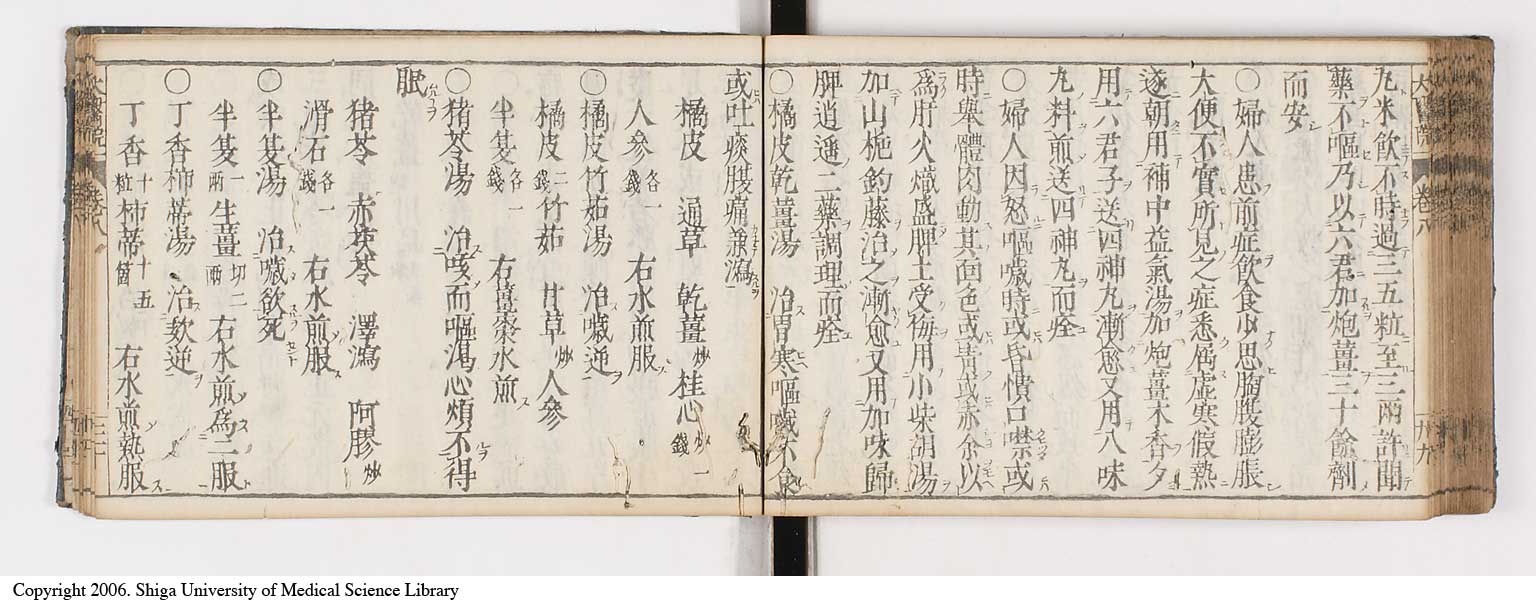 丸米飲不時過三五粒至三兩許聞
藥不嘔乃以六君加炮薑三十餘劑
而安
〇婦人患前症飲食少思胸腹膨脹
大便不實所見之症悉屬虛寒假熱
遂朝用補中益氣湯加炮薑木香夕
用六君子送四神丸漸愈又用八味
丸料煎送四神丸而痊
〇婦人因怒嘔噦時或昏憒口噤或
時舉體肉動其面色或青或赤余以
為肝火熾盛脾土受侮用小柴胡湯
加山梔鈎藤治之漸愈又用加味歸
脾逍遙二藥調理而痊
〇橘皮乾薑湯 治胃寒嘔噦不食
或吐痰腹痛兼瀉
橘皮 通草 乾薑炒桂心炒一錢
人參各一錢 右水煎服
〇橘皮竹茹湯 治噦逆
橘皮二錢竹茹 甘草炒人參
半夏各一錢 右薑棗水煎
〇猪苓湯 治咳而嘔渴心煩不得
眠
猪苓 赤茯苓 澤瀉 阿膠炒
滑石各一錢 右水煎服
〇半夏湯 治噦欲死
半夏一兩生薑切二兩右水煎為二服
〇丁香柿蒂湯 治欬逆
丁香十粒柿蒂十五箇 右水煎熱服
卷八
Copyright 2006. Shiga University of Medical Science Library